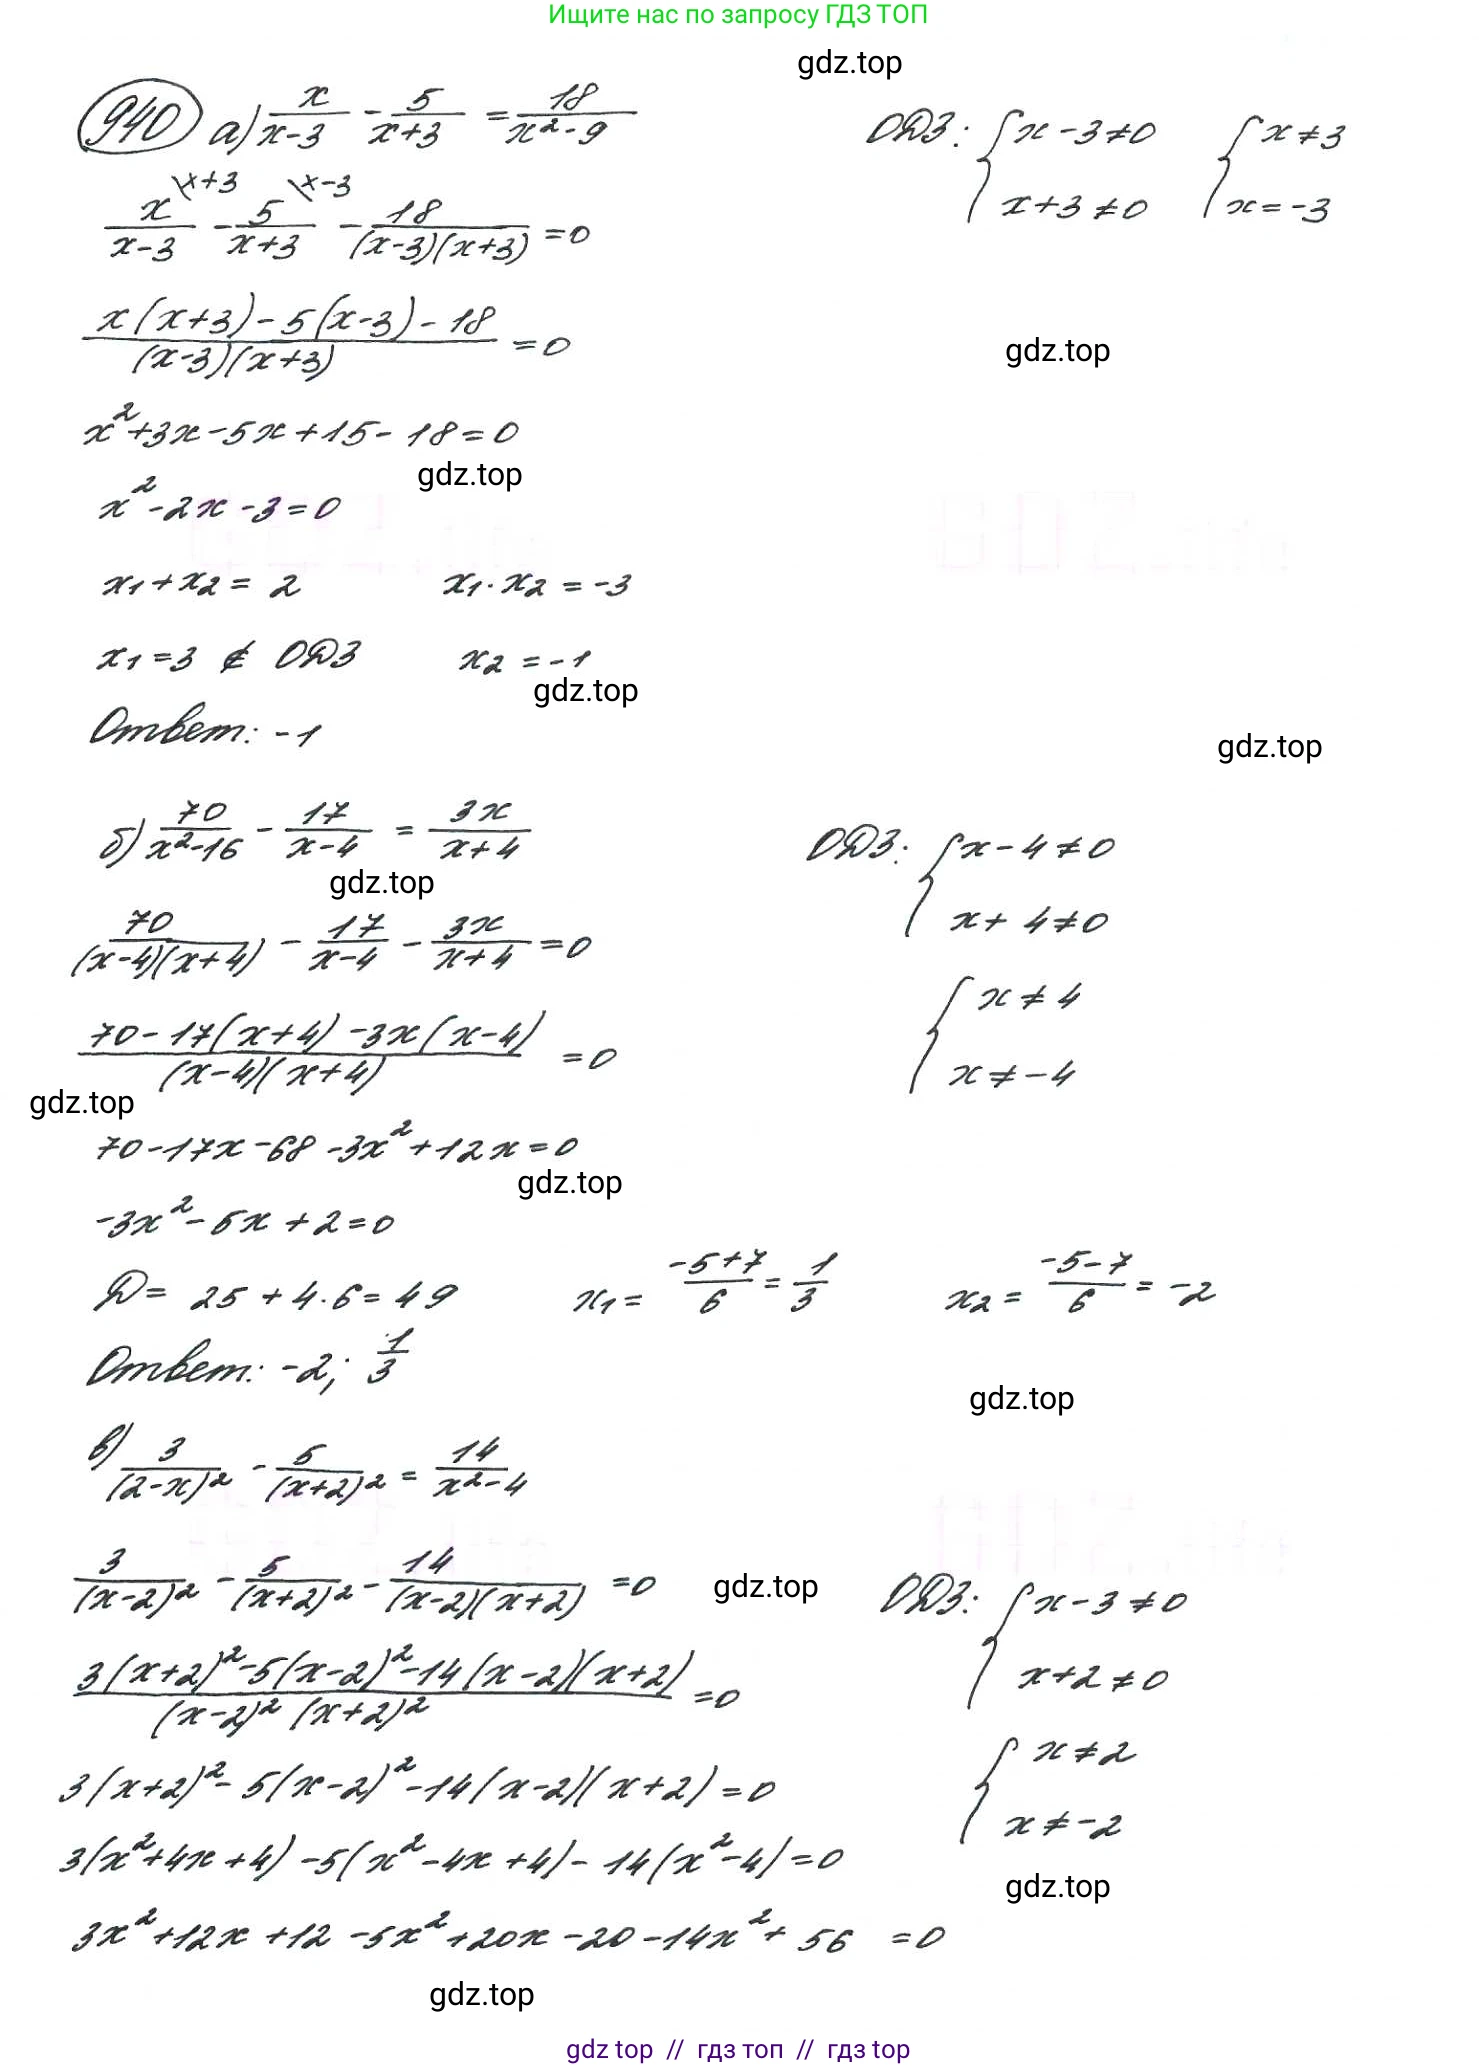 Ищите нас по запросу ГДЗ ТОП
gdz.top
940 а) x/(x-3) - 5/(x+3) = 18/(x²-9)    ОДЗ: { x-3≠0    { x≠3
x+3≠0    x=-3
x/(x-3) \x+3 - 5/(x+3) \x-3 - 18/((x-3)(x+3)) =0
(x(x+3)-5(x-3)-18)/((x-3)(x+3)) =0
gdz.top
x²+3x-5x+15-18=0
gdz.top
x²-2x-3=0
x₁+x₂= 2    x₁·x₂=-3
x₁=3 ∉ ОДЗ    x₂=-1
gdz.top
Ответ: -1
gdz.top
б) 70/(x²-16) - 17/(x-4) = 3x/(x+4)    ОДЗ: { x-4≠0
x+4≠0
gdz.top
70/((x-4)(x+4)) - 17/(x-4) - 3x/(x+4) =0
{ x≠4
x≠-4
(70-17(x+4)-3x(x-4))/((x-4)(x+4)) =0
gdz.top
70-17x-68-3x²+12x=0
gdz.top
-3x²-5x+2=0
D= 25+4·6=49    x₁= (-5+7)/6 = 1/3    x₂= (-5-7)/6 = -2
Ответ: -2; 1/3
gdz.top
в) 3/(2-x)² - 5/(x+2)² = 14/(x²-4)
3/(x-2)² - 5/(x+2)² - 14/((x-2)(x+2)) =0
gdz.top
ОДЗ: { x-3≠0
x+2≠0
(3(x+2)²-5(x-2)²-14(x-2)(x+2))/((x-2)²(x+2)²) =0
{ x≠2
x≠-2
3(x+2)²-5(x-2)²-14(x-2)(x+2)=0
3(x²+4x+4)-5(x²-4x+4)-14(x²-4)=0
gdz.top
3x²+12x+12-5x²+20x-20-14x²+56 =0
gdz.top
gdz top // гдз топ // гдз top